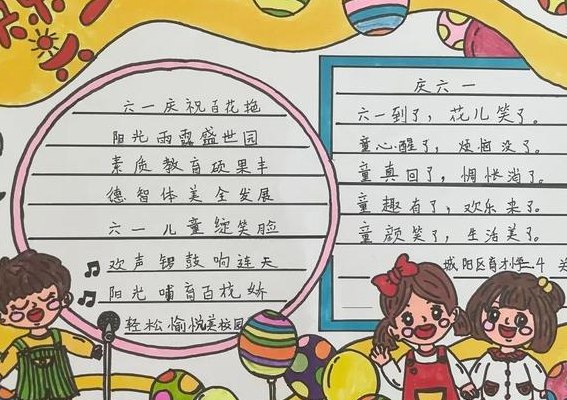 六一庆祝百花艳
阳光雨露盛世园
素质教育硕果丰
德智体美全发展
六一儿童绽笑脸
欢声锣鼓响连天
阳光哺育百花娇
轻松愉悦美校园
庆六一
六一到了，花儿笑了。
童心醒了，烦恼没了。
童真回了，惆怅消了。
童趣有了，欢乐来了。
童颜笑了，生活美了。
城阳区育才小学二4